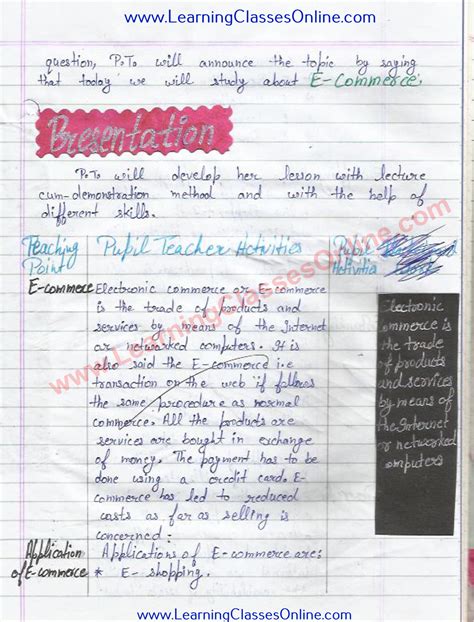 www.LearningClassesOnline.com
question, P.T. will announce the topic by saying
that today we will study about E-Commerce.
Presentation
P.T. will develop her lesson with lecture
cum-demonstration method and with the help of
different skills.
Teaching Point
Pupil Teacher Activities
Pupil Activities
E-commerce
Electronic commerce or E-commerce
is the trade of products and
services by means of the Internet
or networked computers. It is
also said the E-commerce i.e
transaction on the web if follows
the same procedure as normal
commerce. All the products are
services are bought in exchange
of money. The payment has to be
done using a credit card. E-
commerce has led to reduced
costs as far as selling is
concerned.
Electronic
commerce is
the trade
of products
and services
by means of
the Internet
or networked
computers
Application
of E-commerce
Applications of E-commerce are:
* E-shopping.
www.LearningClassesOnline.com
www.LearningClassesOnline.com